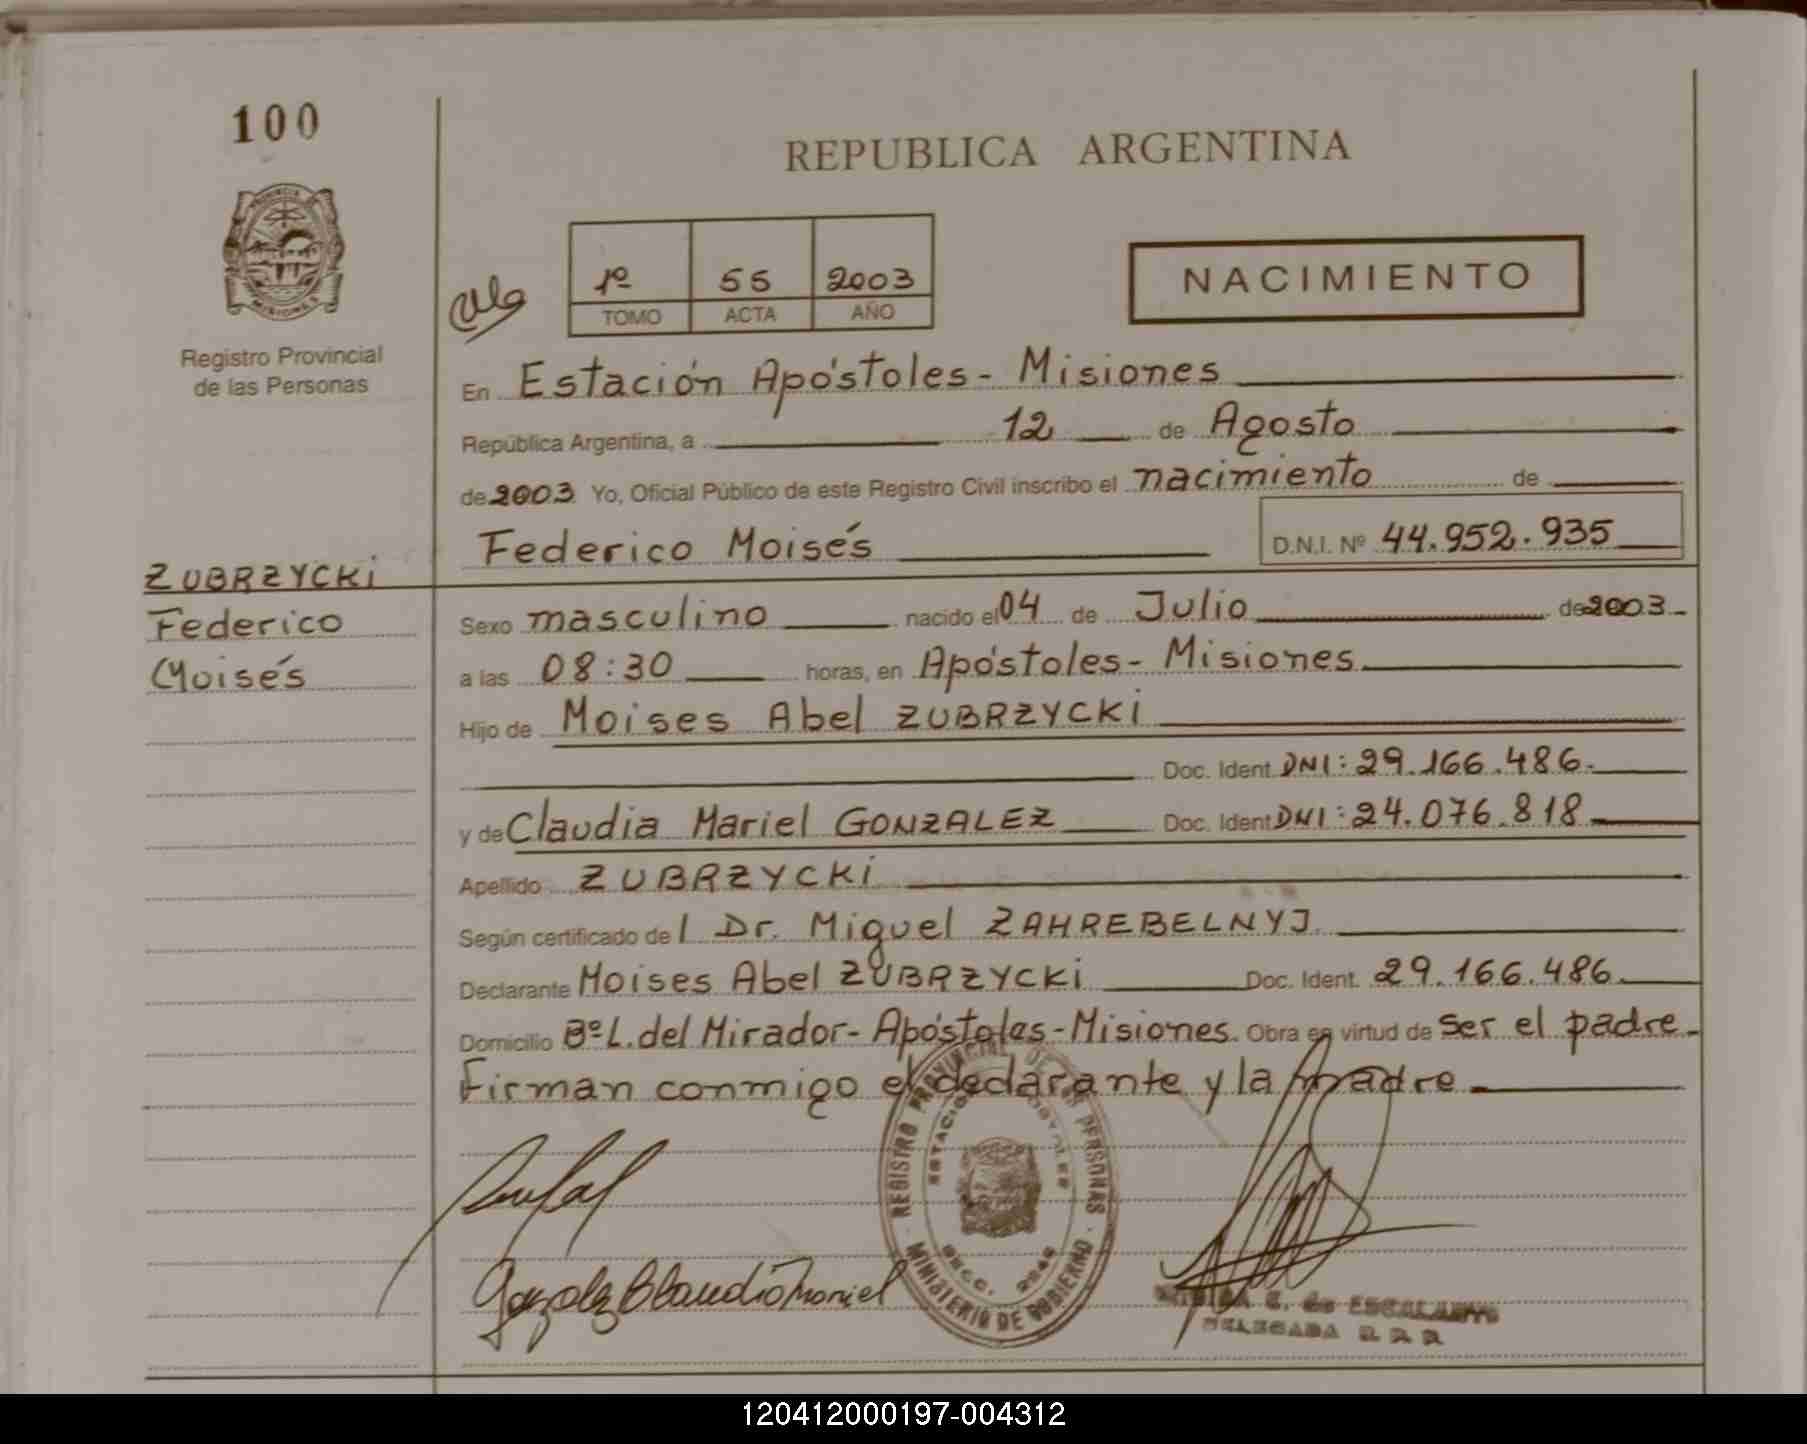 100
REPUBLICA ARGENTINA
1º 55 2003
TOMO ACTA AÑO
NACIMIENTO
PROVINCIA
MISIONES
Registro Provincial
de las Personas
En Estación Apóstoles - Misiones
República Argentina, a 12 de Agosto
de 2003 Yo, Oficial Público de este Registro Civil inscribo el nacimiento de
Federico Moisés D.N.I. Nº 44.952.935
ZUBRZYCKi
Federico
Moisés
Sexo masculino nacido el 04 de Julio de 2003
a las 08:30 horas, en Apóstoles - Misiones
Hijo de Moises Abel ZUBRZYCKi
Doc. Ident. DNI: 29.166.486.
y de Claudia Mariel GONZALEZ Doc. Ident. DNI: 24.076.818
Apellido ZUBRZYCKi
Según certificado del Dr. Miguel ZAHREBELNYJ
Declarante Moises Abel ZUBRZYCKi Doc. Ident. 29.166.486
Domicilio Bº L. del Mirador - Apóstoles - Misiones. Obra en virtud de ser el padre.
Firman conmigo el declarante y la madre
REGISTRO PROVINCIAL DE LAS PERSONAS
MINISTERIO DE GOBIERNO
C. de ESCALANTE
DELEGADA
120412000197-004312